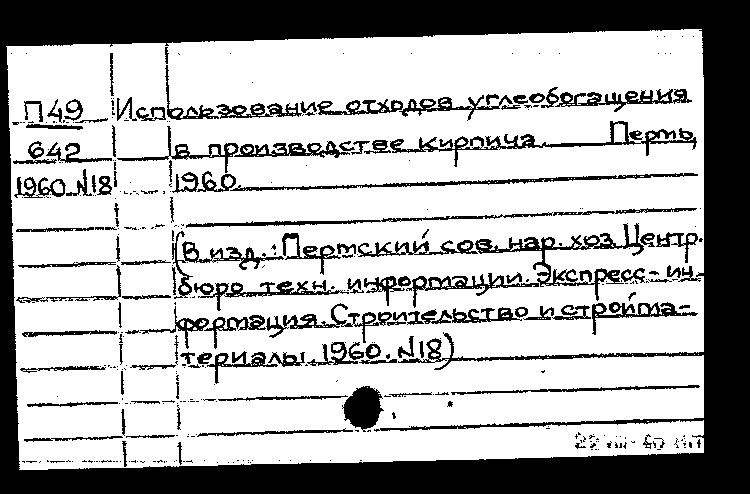 П49 Использование отходов углеобогащения
642 в производстве кирпича. Пермь,
1960 N18 1960.
(В изд.: Пермский сов. нар. хоз Центр.
бюро техн. информации. Экспресс-ин-
формация. Строительство и стройма-
териалы. 1960. N18)